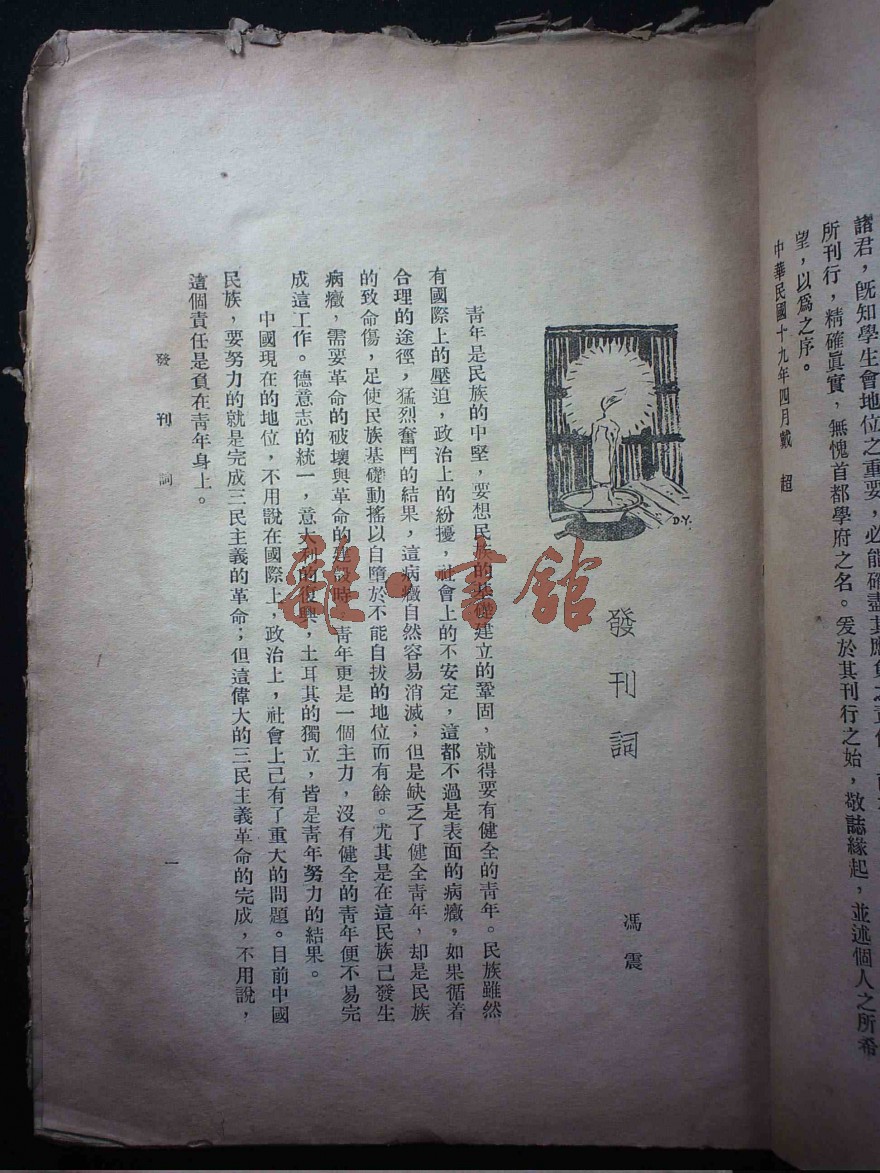 諸君，既知學生會地位之重要，必能確盡其應負之責任
所刊行，精確眞實，無愧首都學府之名。爰於其刊行之始，敬誌緣起，並述個人之所希
望，以爲之序。
中華民國十九年四月戴 超
D.Y.
發刊詞
馮震
靑年是民族的中堅，要想民族的基礎建立的鞏固，就得要有健全的靑年。民族雖然
有國際上的壓迫，政治上的紛擾，社會上的不安定，這都不過是表面的病癥，如果循着
合理的途徑，猛烈奮鬥的結果，這病癥自然容易消滅；但是缺乏了健全靑年，却是民族
的致命傷，足使民族基礎動搖以自墮於不能自拔的地位而有餘。尤其是在這民族已發生
病癥，需要革命的破壞與革命的建設時，靑年更是一個主力，沒有健全的靑年便不易完
成這工作。德意志的統一，意大利的復興，土耳其的獨立，皆是靑年努力的結果。
中國現在的地位，不用說在國際上，政治上，社會上已有了重大的問題。目前中國
民族，要努力的就是完成三民主義的革命；但這偉大的三民主義革命的完成，不用說，
這個責任是負在靑年身上。
發刊詞
一
雜·書館